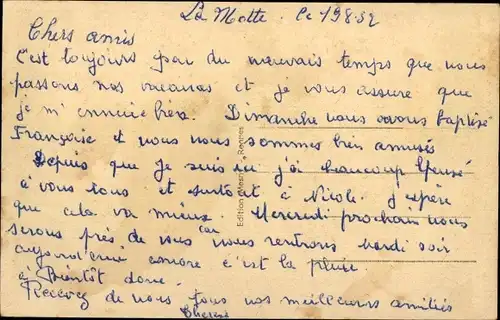 La Motte. le 19 8.52
Chers amis
C'est toujours par du mauvais temps que nous
passons nos vacances et je vous assure que
je m'ennuie bien. Dimanche nous avons baptisé
Françoise et nous nous sommes bien amusés
Depuis que je suis ici j'ai beaucoup pensé
à vous tous et surtout à Nicole. J'espère
que cela va mieux. Mercredi prochain nous
serons près de vous car nous rentrons mardi soir
aujourd'hui encore c'est la pluie.
à Bientôt donc.
Recevez de nous tous nos meilleures amitiés
Thérèse
Edition Mary Rennes